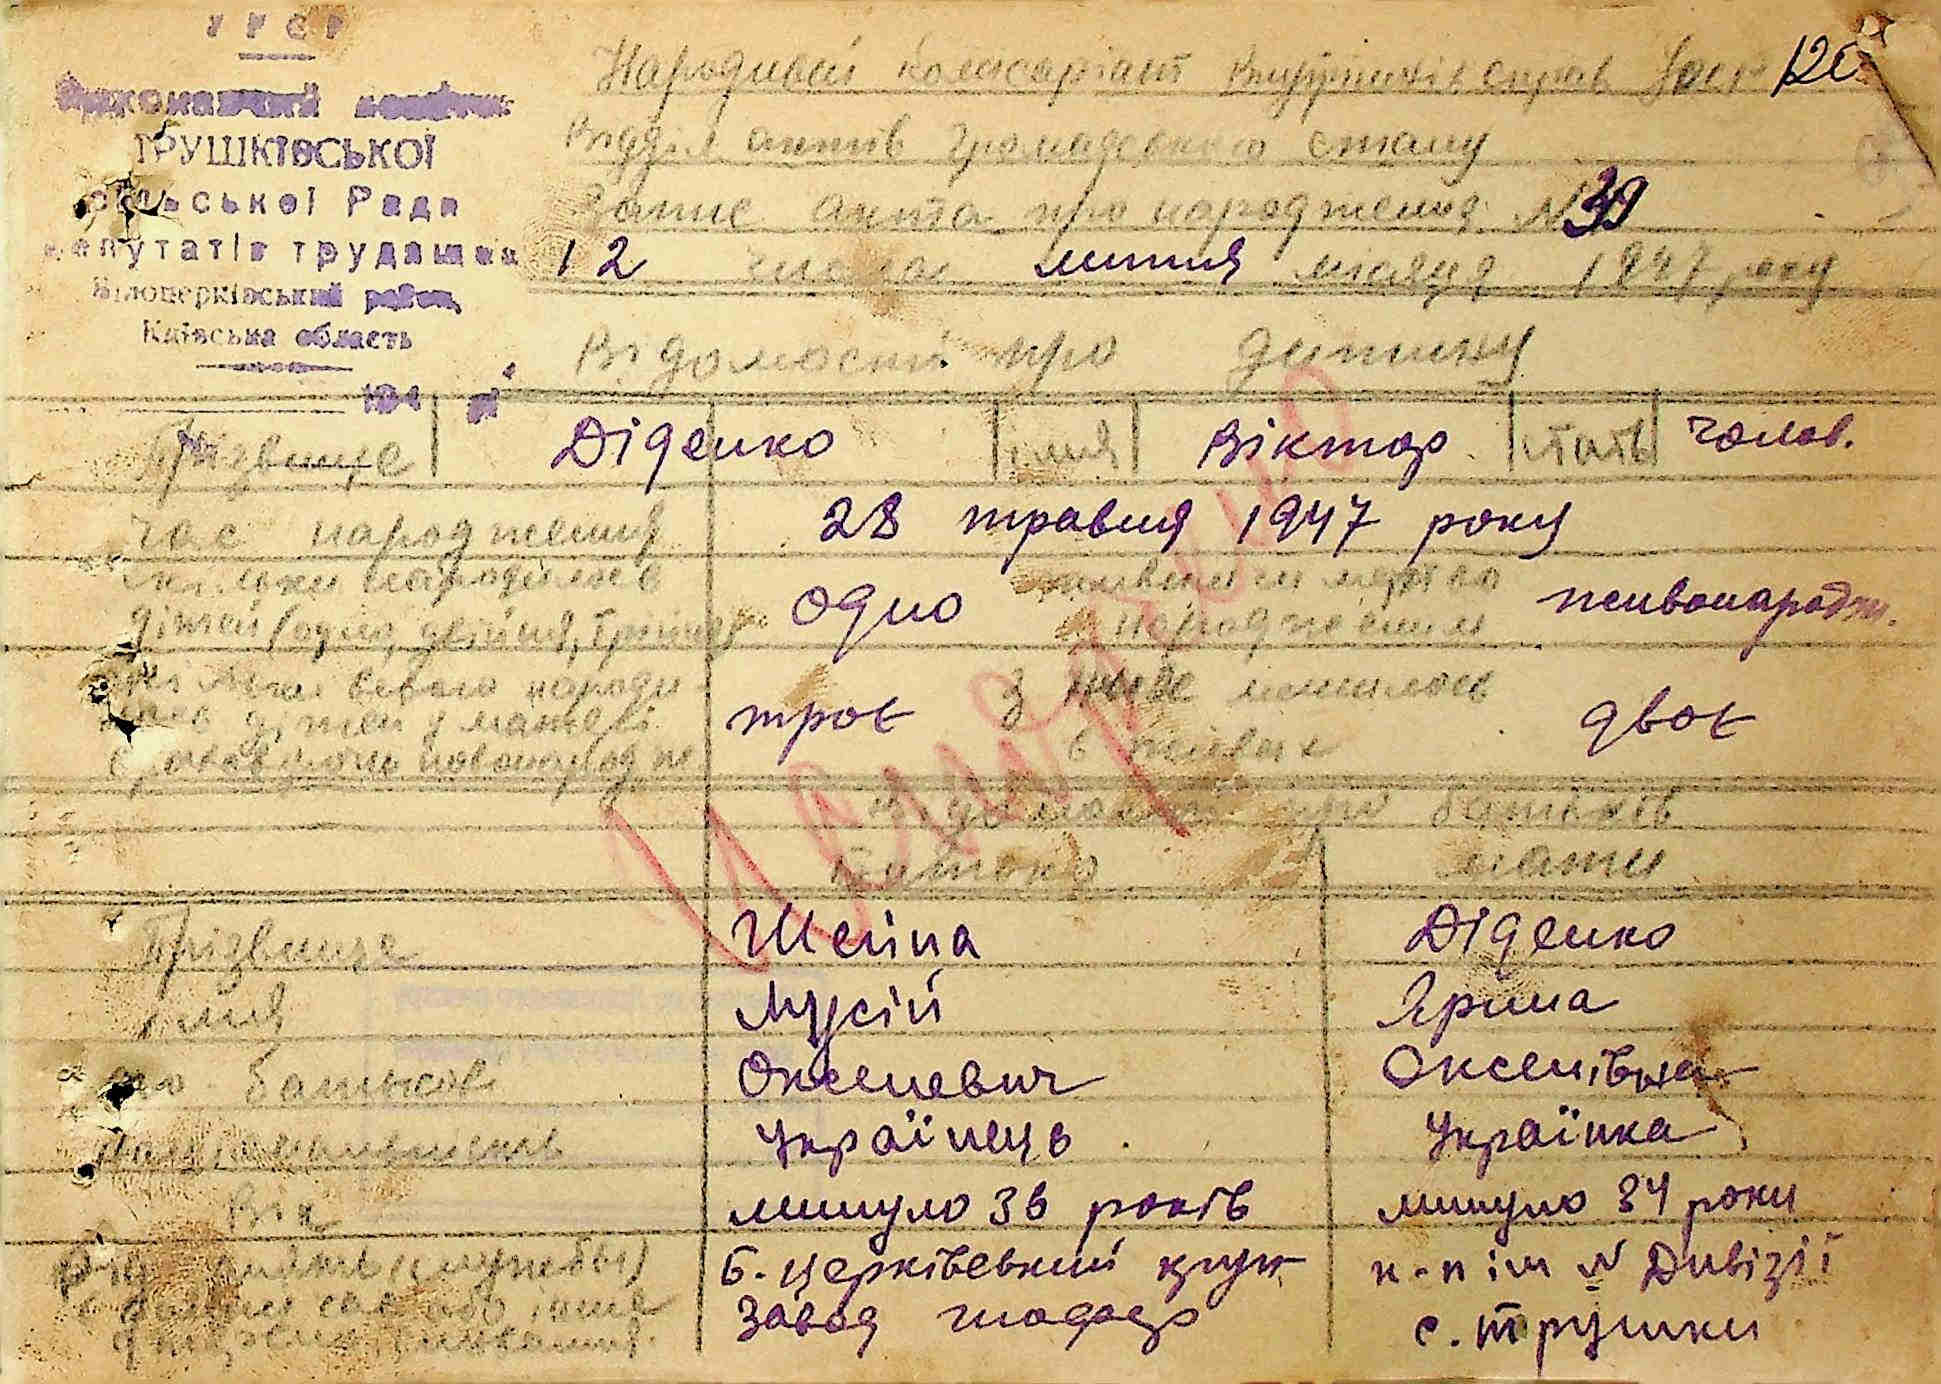 УРСР
Виконавчий комітет
ТРУШКІВСЬКОЇ
сільської Ради
депутатів трудящих
Білоцерківський район
Київська область
194 р.
Народний Комісаріат Внутрішніх справ УРСР 120
Відділ актів громадського стану
Запис акта про народження № 39
12 числа липня місяця 1947 року
Відомості про дитину
Прізвище Діденко імя Віктор стать чолов.
Час народження 28 травня 1947 року
Скільки народилося дітей (одно, двійня, трійня) одно живим чи мертво народженим живонародж.
Скільки всього народилось дітей у матері враховуючи новонародже. троє з них лишилось в живих двоє
Відомості про батьків
Батько мати
Прізвище Шейна Діденко
Імя Мусій Ярина
по батькові Оксенович Оксенівна
Національність Українець Українка
Вік минуло 36 років минуло 34 роки
Рід занять (служби) Б-церківський цукр к-п ім № Дивізії
завод с. Трушки